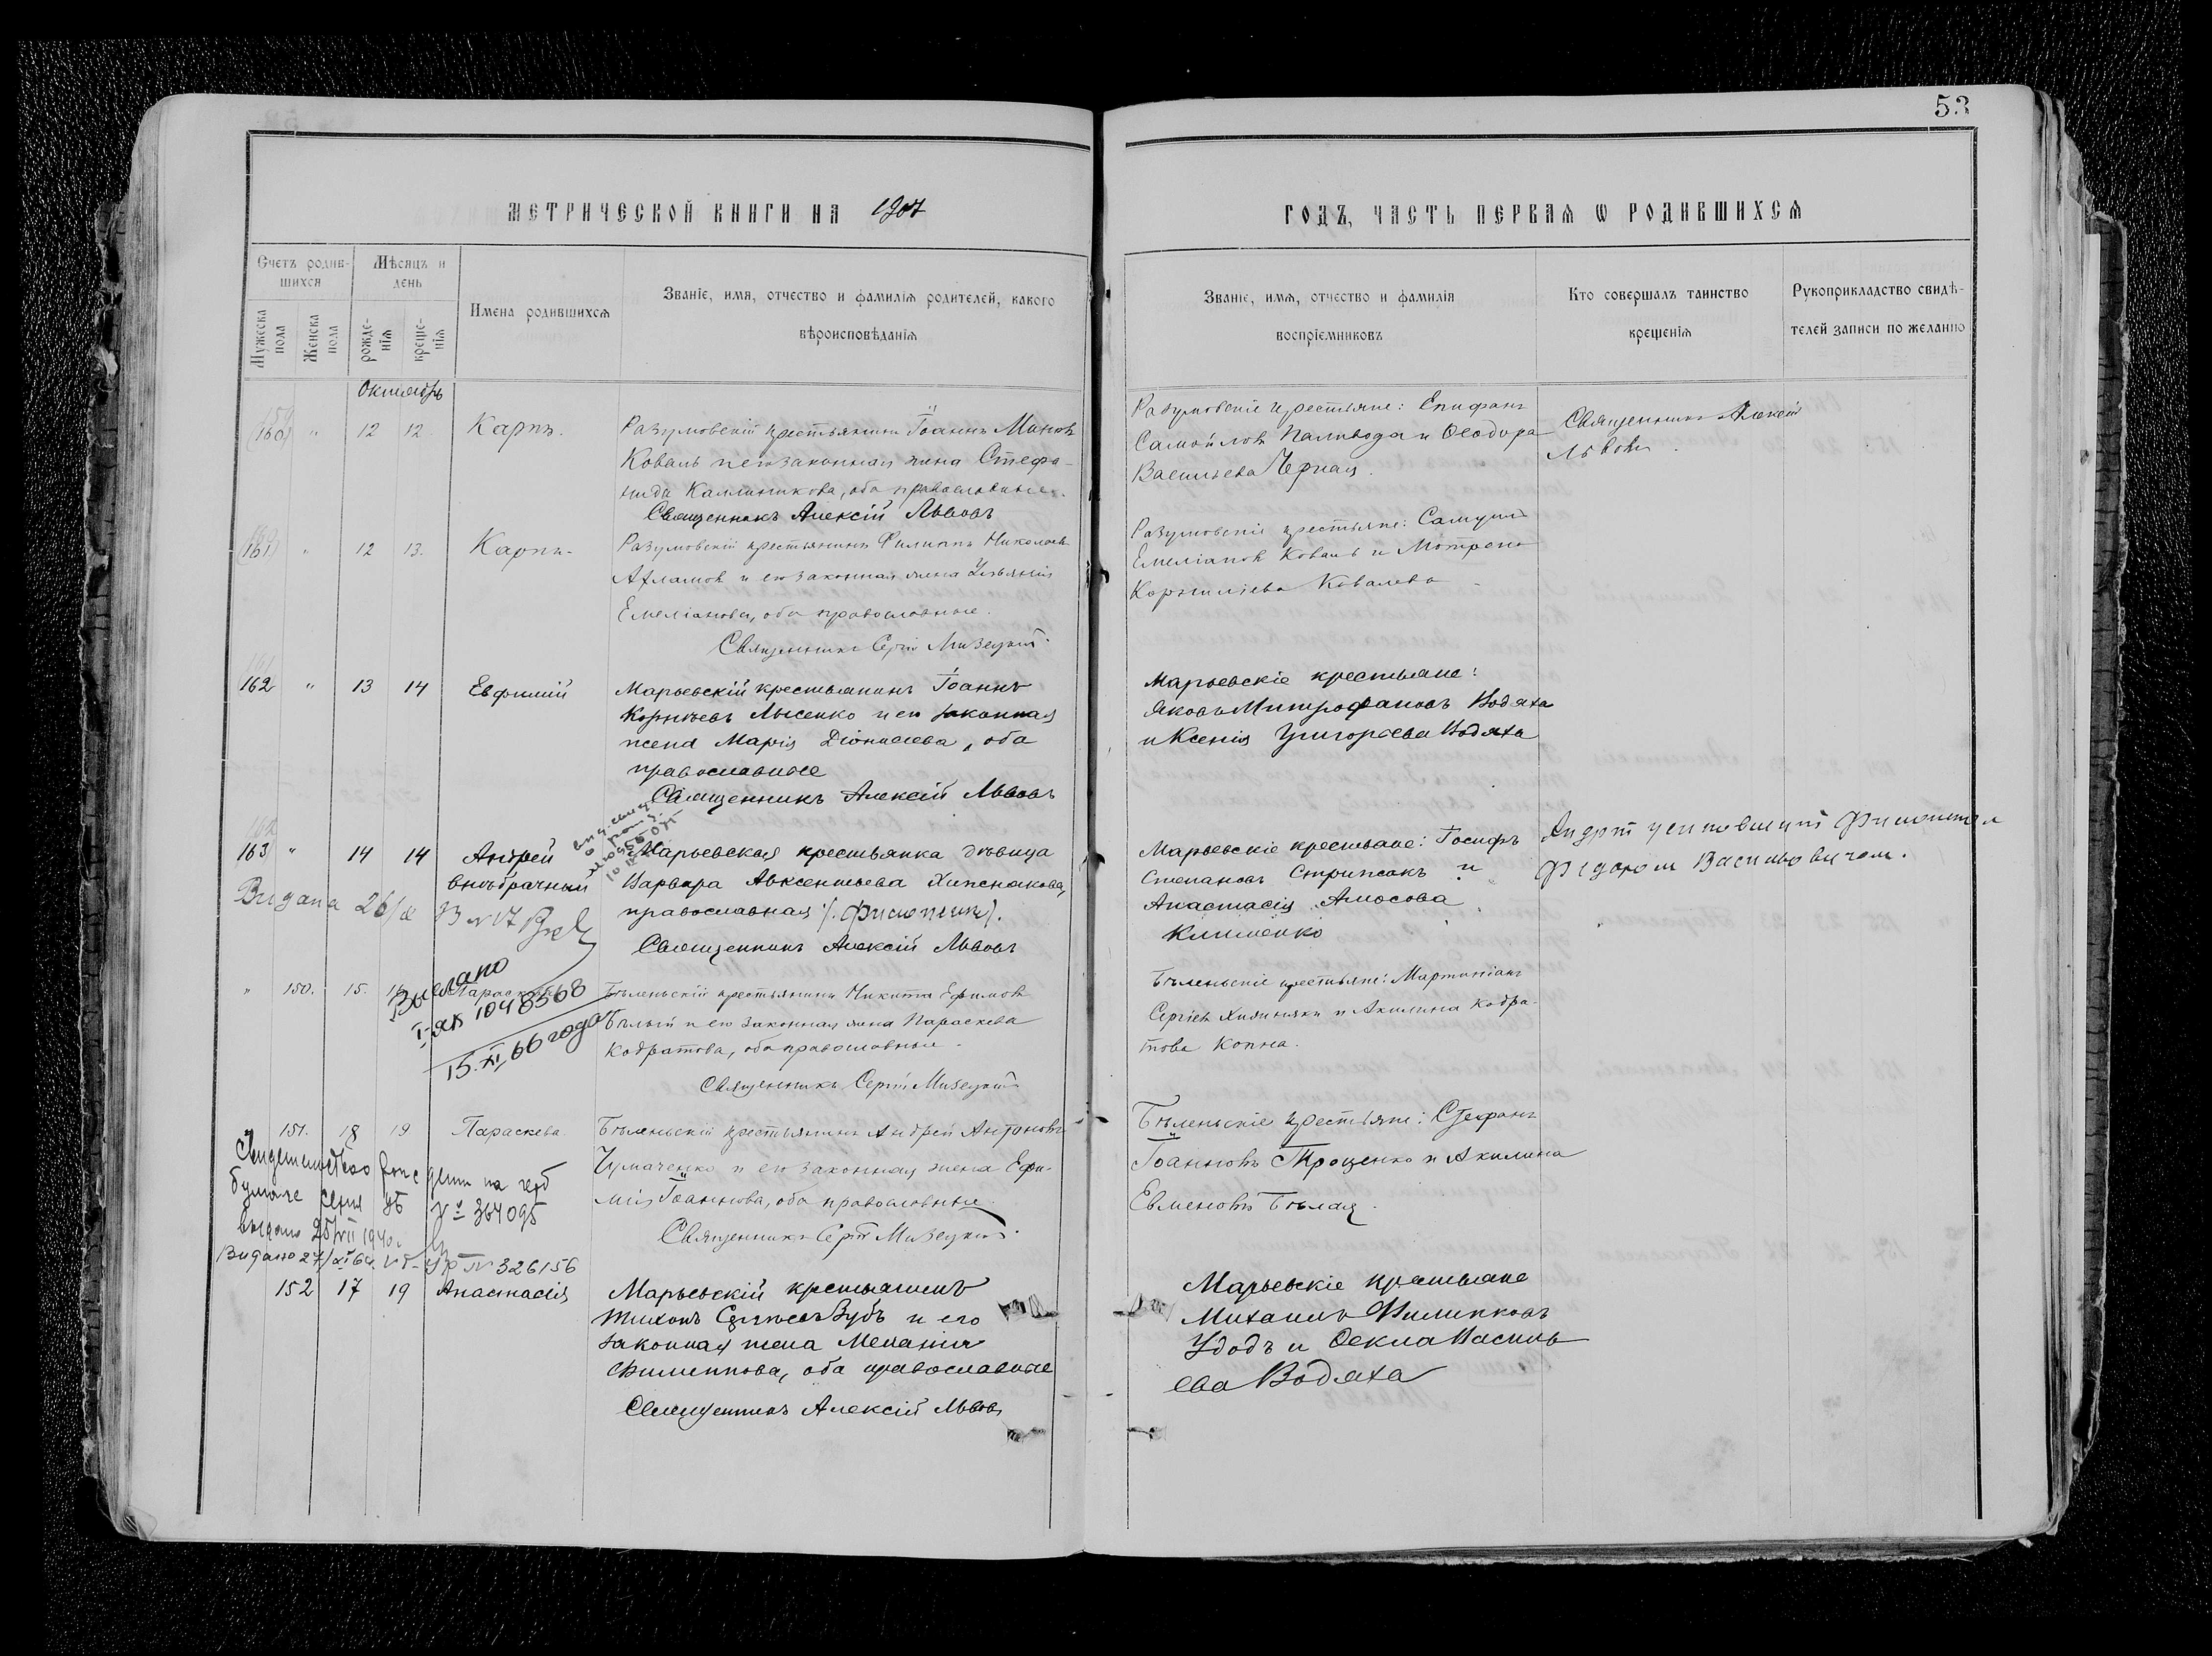 53
МЕТРИЧЕСКОЙ КНИГИ НА 1907
ГОДЪ, ЧАСТЬ ПЕРВАЯ Ѡ РОДИВШИХСЯ
Счетъ родив-
шихся
Мѣсяцъ и
день
Мужеска
пола
Женска
пола
рожде-
нія
креще-
нія
Имена родившихся
Званіе, имя, отчество и фамилія родителей, какого
вѣроисповѣданія
Званіе, имя, отчество и фамилія
воспріемниковъ
Кто совершалъ таинство
крещенія
Рукоприкладство свидѣ-
телей записи по желанію
Октябрь
160 " 12 12 Карпъ.
Разумовскій крестьянинъ Іоаннъ Миновъ
Коваль и его законная жена Стефа-
нида Каллиникова, оба православные.
Священникъ Алексій Львовъ
Разумовскіе крестьяне: Епифанъ
Самойловъ Паливода и Ѳеодора
Васильева Черная.
Священникъ Алексій
Львовъ.
161 " 12 13. Карпъ-
Разумовскій крестьянинъ Филиппъ Николаевъ
и его законная жена
Емеліанова, оба православные.
Священникъ Сергій Мизецкій.
Разумовскіе крестьяне: Самуилъ
Емеліановъ Коваль и Мотрона
Корниліева Ковалева
162 " 13 14 Евфимій
Марьевскій крестьянинъ Іоаннъ
Корнѣевъ Лысенко и его законная
жена Марія Діонисіева, оба
православные
Священникъ Алексій Львовъ
Марьевскіе крестьяне:
Яковъ Митрофановъ Водяха
и Ксенія Григорьева Водяха
163 " 14 14 Андрей
внѣбрачный
Марьевская крестьянка дѣвица
Варвара Авксентьева
православная (Филоненко).
Священникъ Алексій Львовъ
Марьевскіе крестьяне: Іосифъ
Степановъ Стрижакъ и
Анастасія Амосова
Клименко
Андрій усиновлений Филоненком
Федором Васильовичем.
Видана 26/
" 150. 15. 16 Параскева
Выдано
I-ЯК 1048568
15.XI,66 года
Бѣленьскій крестьянинъ Никита Ефимовъ
Бѣлый и его законная жена Параскева
Кодратова, оба православные.
Священникъ Сергій Мизецкій
Бѣленьскіе крестьяне: Мартиніанъ
Сергіевъ Хижнякъ и Акилина Кодра-
това Копна.
151. 18 19 Параскева
Бѣленьскій крестьянинъ Андрей Антоновъ
Чумаченко и его законная жена Ефи-
мія Іоаннова, оба православные.
Священникъ Сергій Мизецкій.
Бѣленьскіе крестьяне: Стефанъ
Іоанновъ Троценко и Акилина
Евменовъ Бѣлая.
бумаге серия УБ № 364095
выдано 25/VII 1940.
Видано 27/XI 64 № 326156
152 17 19 Анастасія
Марьевскій крестьянинъ
Тихонъ Сергѣевъ Зубъ и его
законная жена Меланія
Филиппова, оба православные
Священникъ Алексій Львовъ
Марьевскіе крестьяне
Михаилъ Филипповъ
Удодъ и Ѳекла Василь
ева Водяха